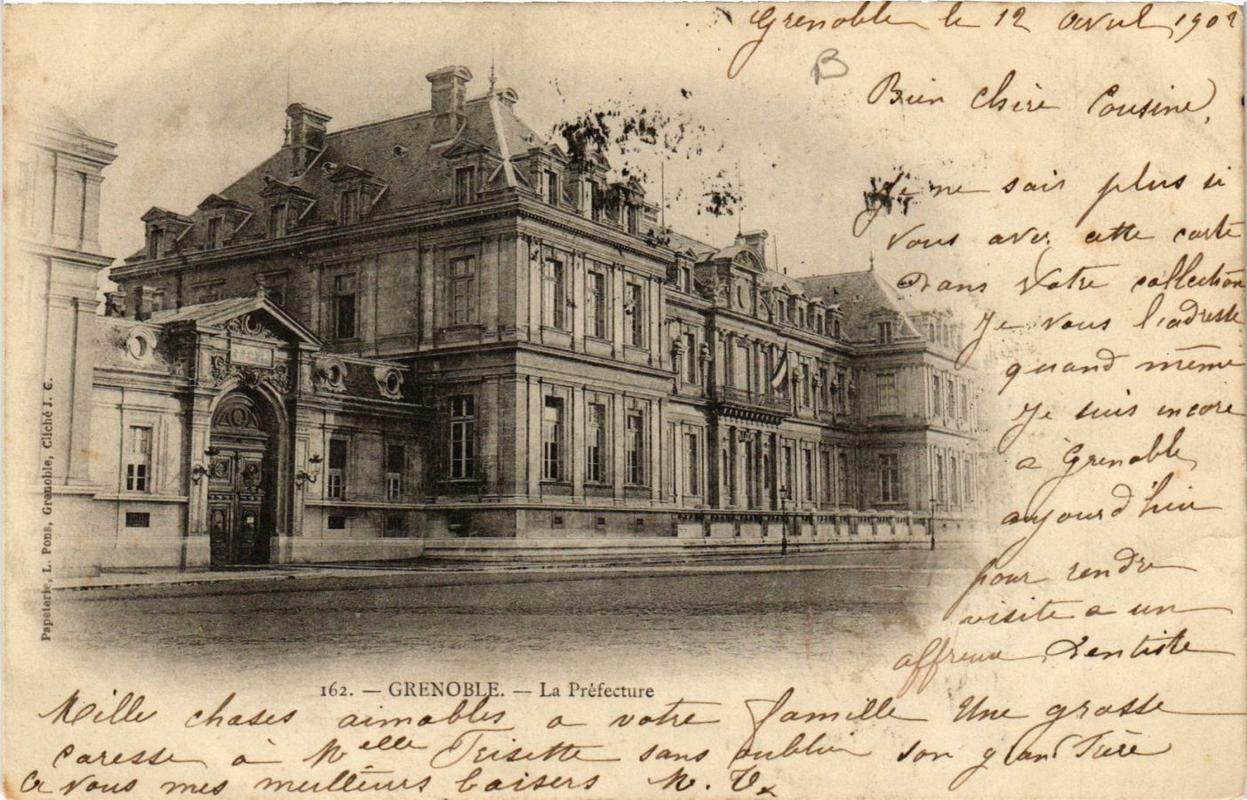 Grenoble le 12 avril 1902
B
Bien chère Cousine,
Je ne sais plus si
vous avez cette carte
dans votre collection
Je vous l'adresse
quand même
Je suis encore
à Grenoble
aujourd'hui
pour rendre
visite a un
affreux Dentiste
Papeterie, L. Pons, Grenoble, Cliché J. C.
162. — GRENOBLE. — La Préfecture
Mille choses aimables a votre famille Une grosse
caresse à Melle sans oublier son grand frère
A vous mes meilleurs baisers M. V.